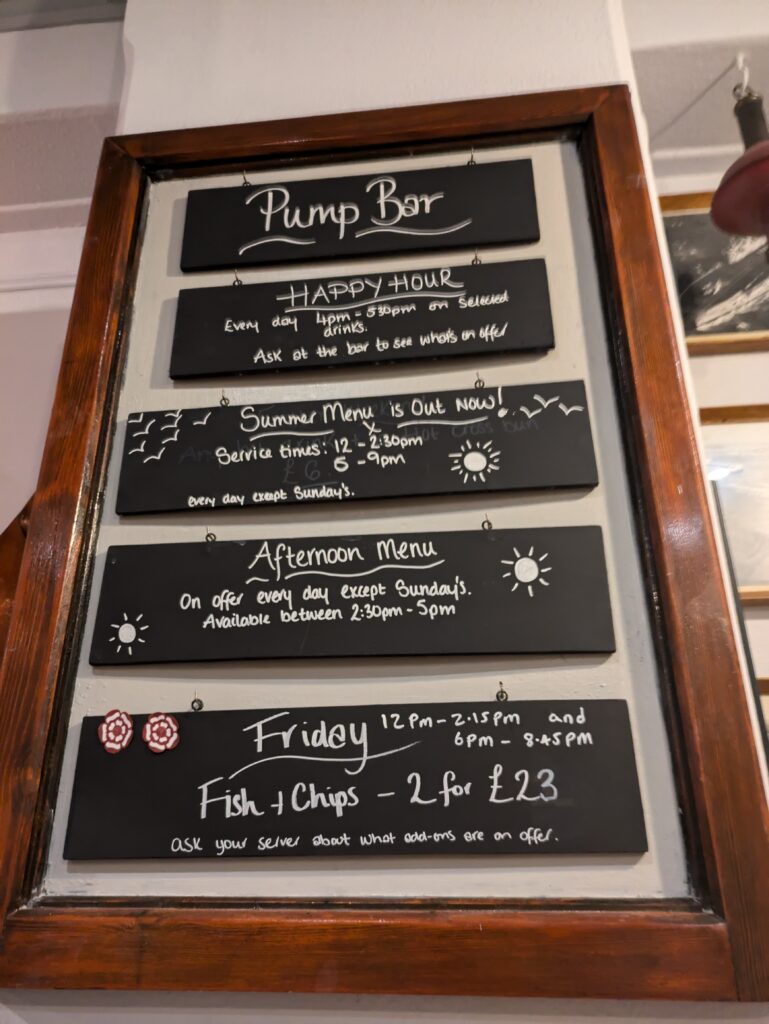 Pump Bar
HAPPY HOUR
Every day 4pm - 530pm on selected
drinks.
Ask at the bar to see what's on offer
Summer Menu is Out Now!
Service times: 12 - 2:30pm
6 - 9pm
every day except Sunday's.
Afternoon Menu
On offer every day except Sunday's.
Available between 2:30pm - 5pm
Friday 12pm - 2.15pm and
6pm - 8.45pm
Fish + Chips - 2 for £23
ask your server about what add-ons are on offer.